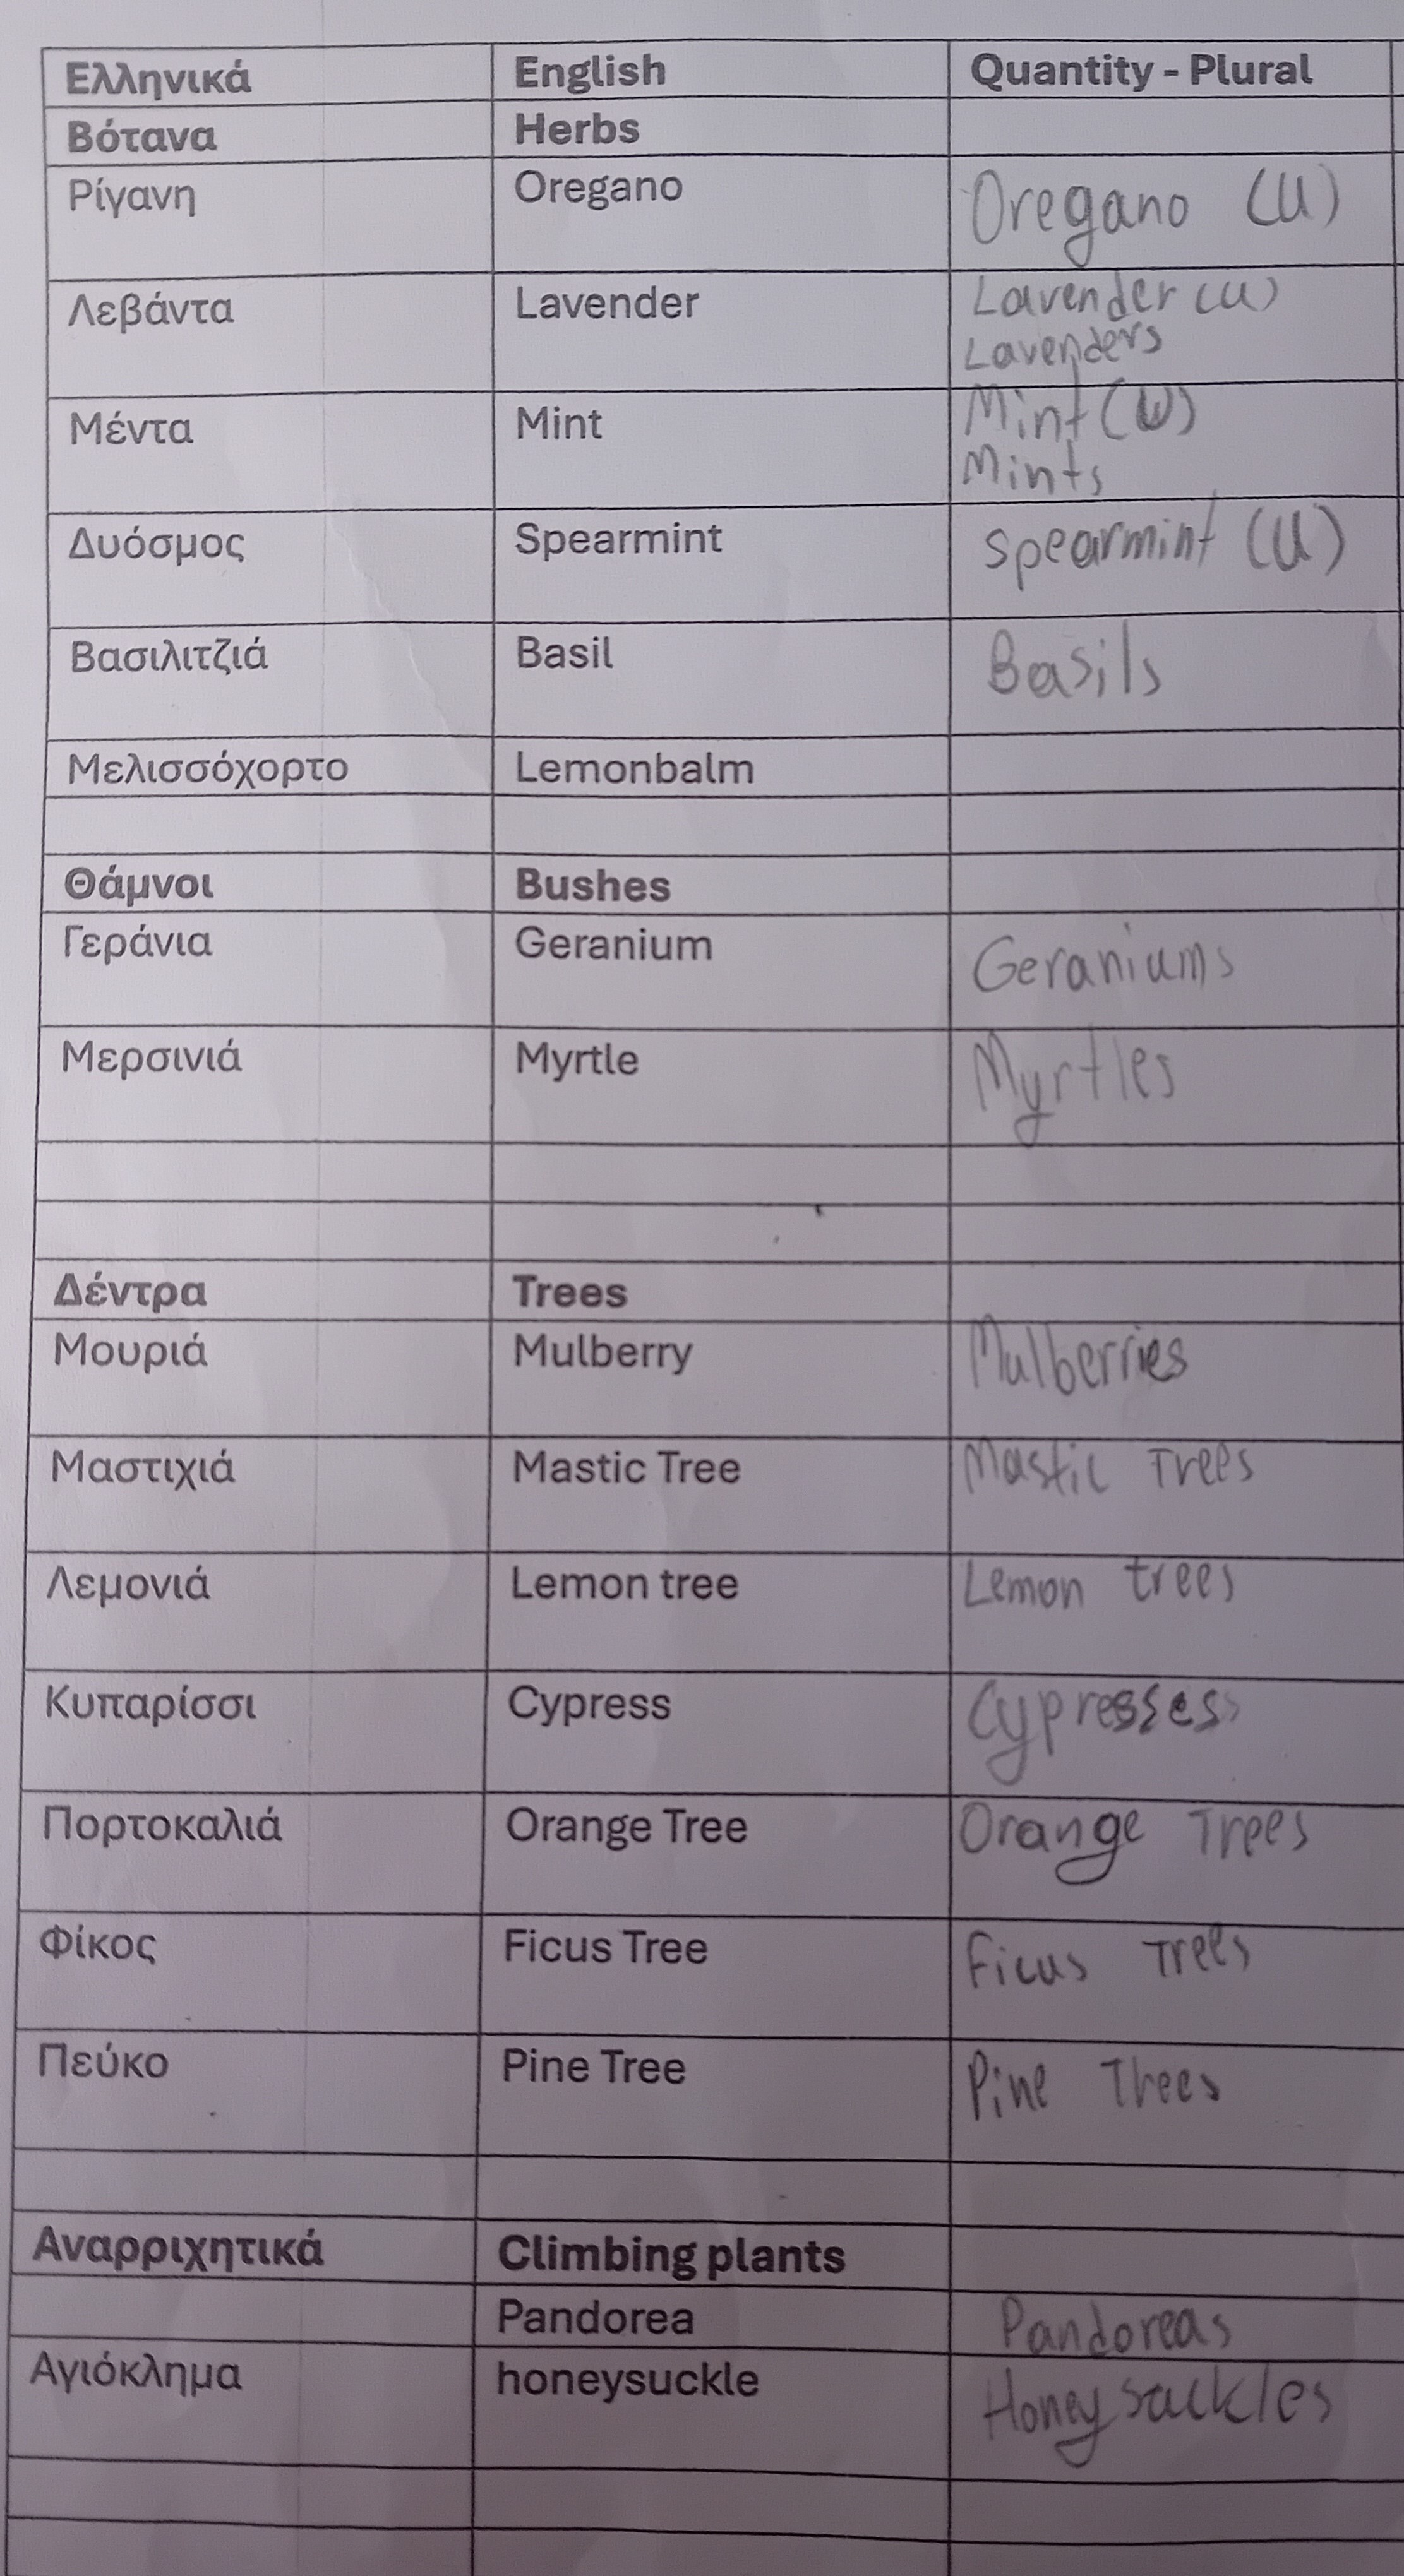 Ελληνικά English Quantity - Plural
Βότανα Herbs
Ρίγανη Oregano Oregano (U)
Λεβάντα Lavender Lavender (u)
Lavenders
Μέντα Mint Mint (U)
Mints
Δυόσμος Spearmint spearmint (U)
Βασιλιτζιά Basil Basils
Μελισσόχορτο Lemonbalm
Θάμνοι Bushes
Γεράνια Geranium Geraniums
Μερσινιά Myrtle Myrtles
Δέντρα Trees
Μουριά Mulberry Mulberries
Μαστιχιά Mastic Tree Mastic Trees
Λεμονιά Lemon tree Lemon trees
Κυπαρίσσι Cypress Cypresses
Πορτοκαλιά Orange Tree Orange Trees
Φίκος Ficus Tree Ficus Trees
Πεύκο Pine Tree Pine Trees
Αναρριχητικά Climbing plants
Pandorea Pandoreas
Αγιόκλημα honeysuckle Honeysuckles